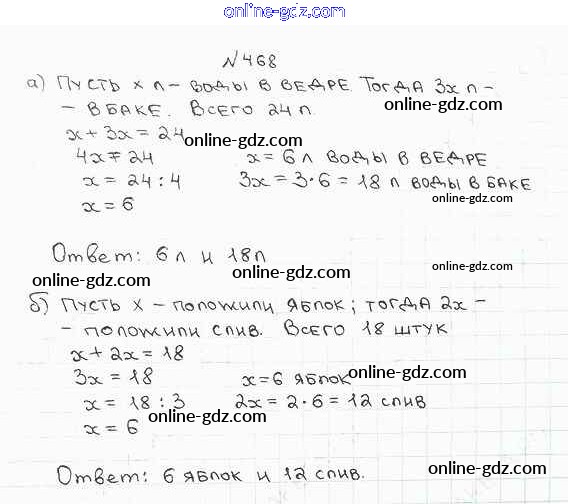 online-gdz.com
№468
а) Пусть x л – воды в ведре. Тогда 3x л –
– в баке. Всего 24 л. online-gdz.com
x + 3x = 24 online-gdz.com
4x = 24 x = 6 л воды в ведре
x = 24 : 4 3x = 3·6 = 18 л воды в баке
x = 6 online-gdz.com
Ответ: 6 л и 18 л
online-gdz.com online-gdz.com online-gdz.com
б) Пусть x – положили яблок; тогда 2x –
– положили слив. Всего 18 штук
x + 2x = 18
3x = 18 x = 6 яблок online-gdz.com
x = 18 : 3 2x = 2·6 = 12 слив
x = 6 online-gdz.com
Ответ: 6 яблок и 12 слив. online-gdz.com